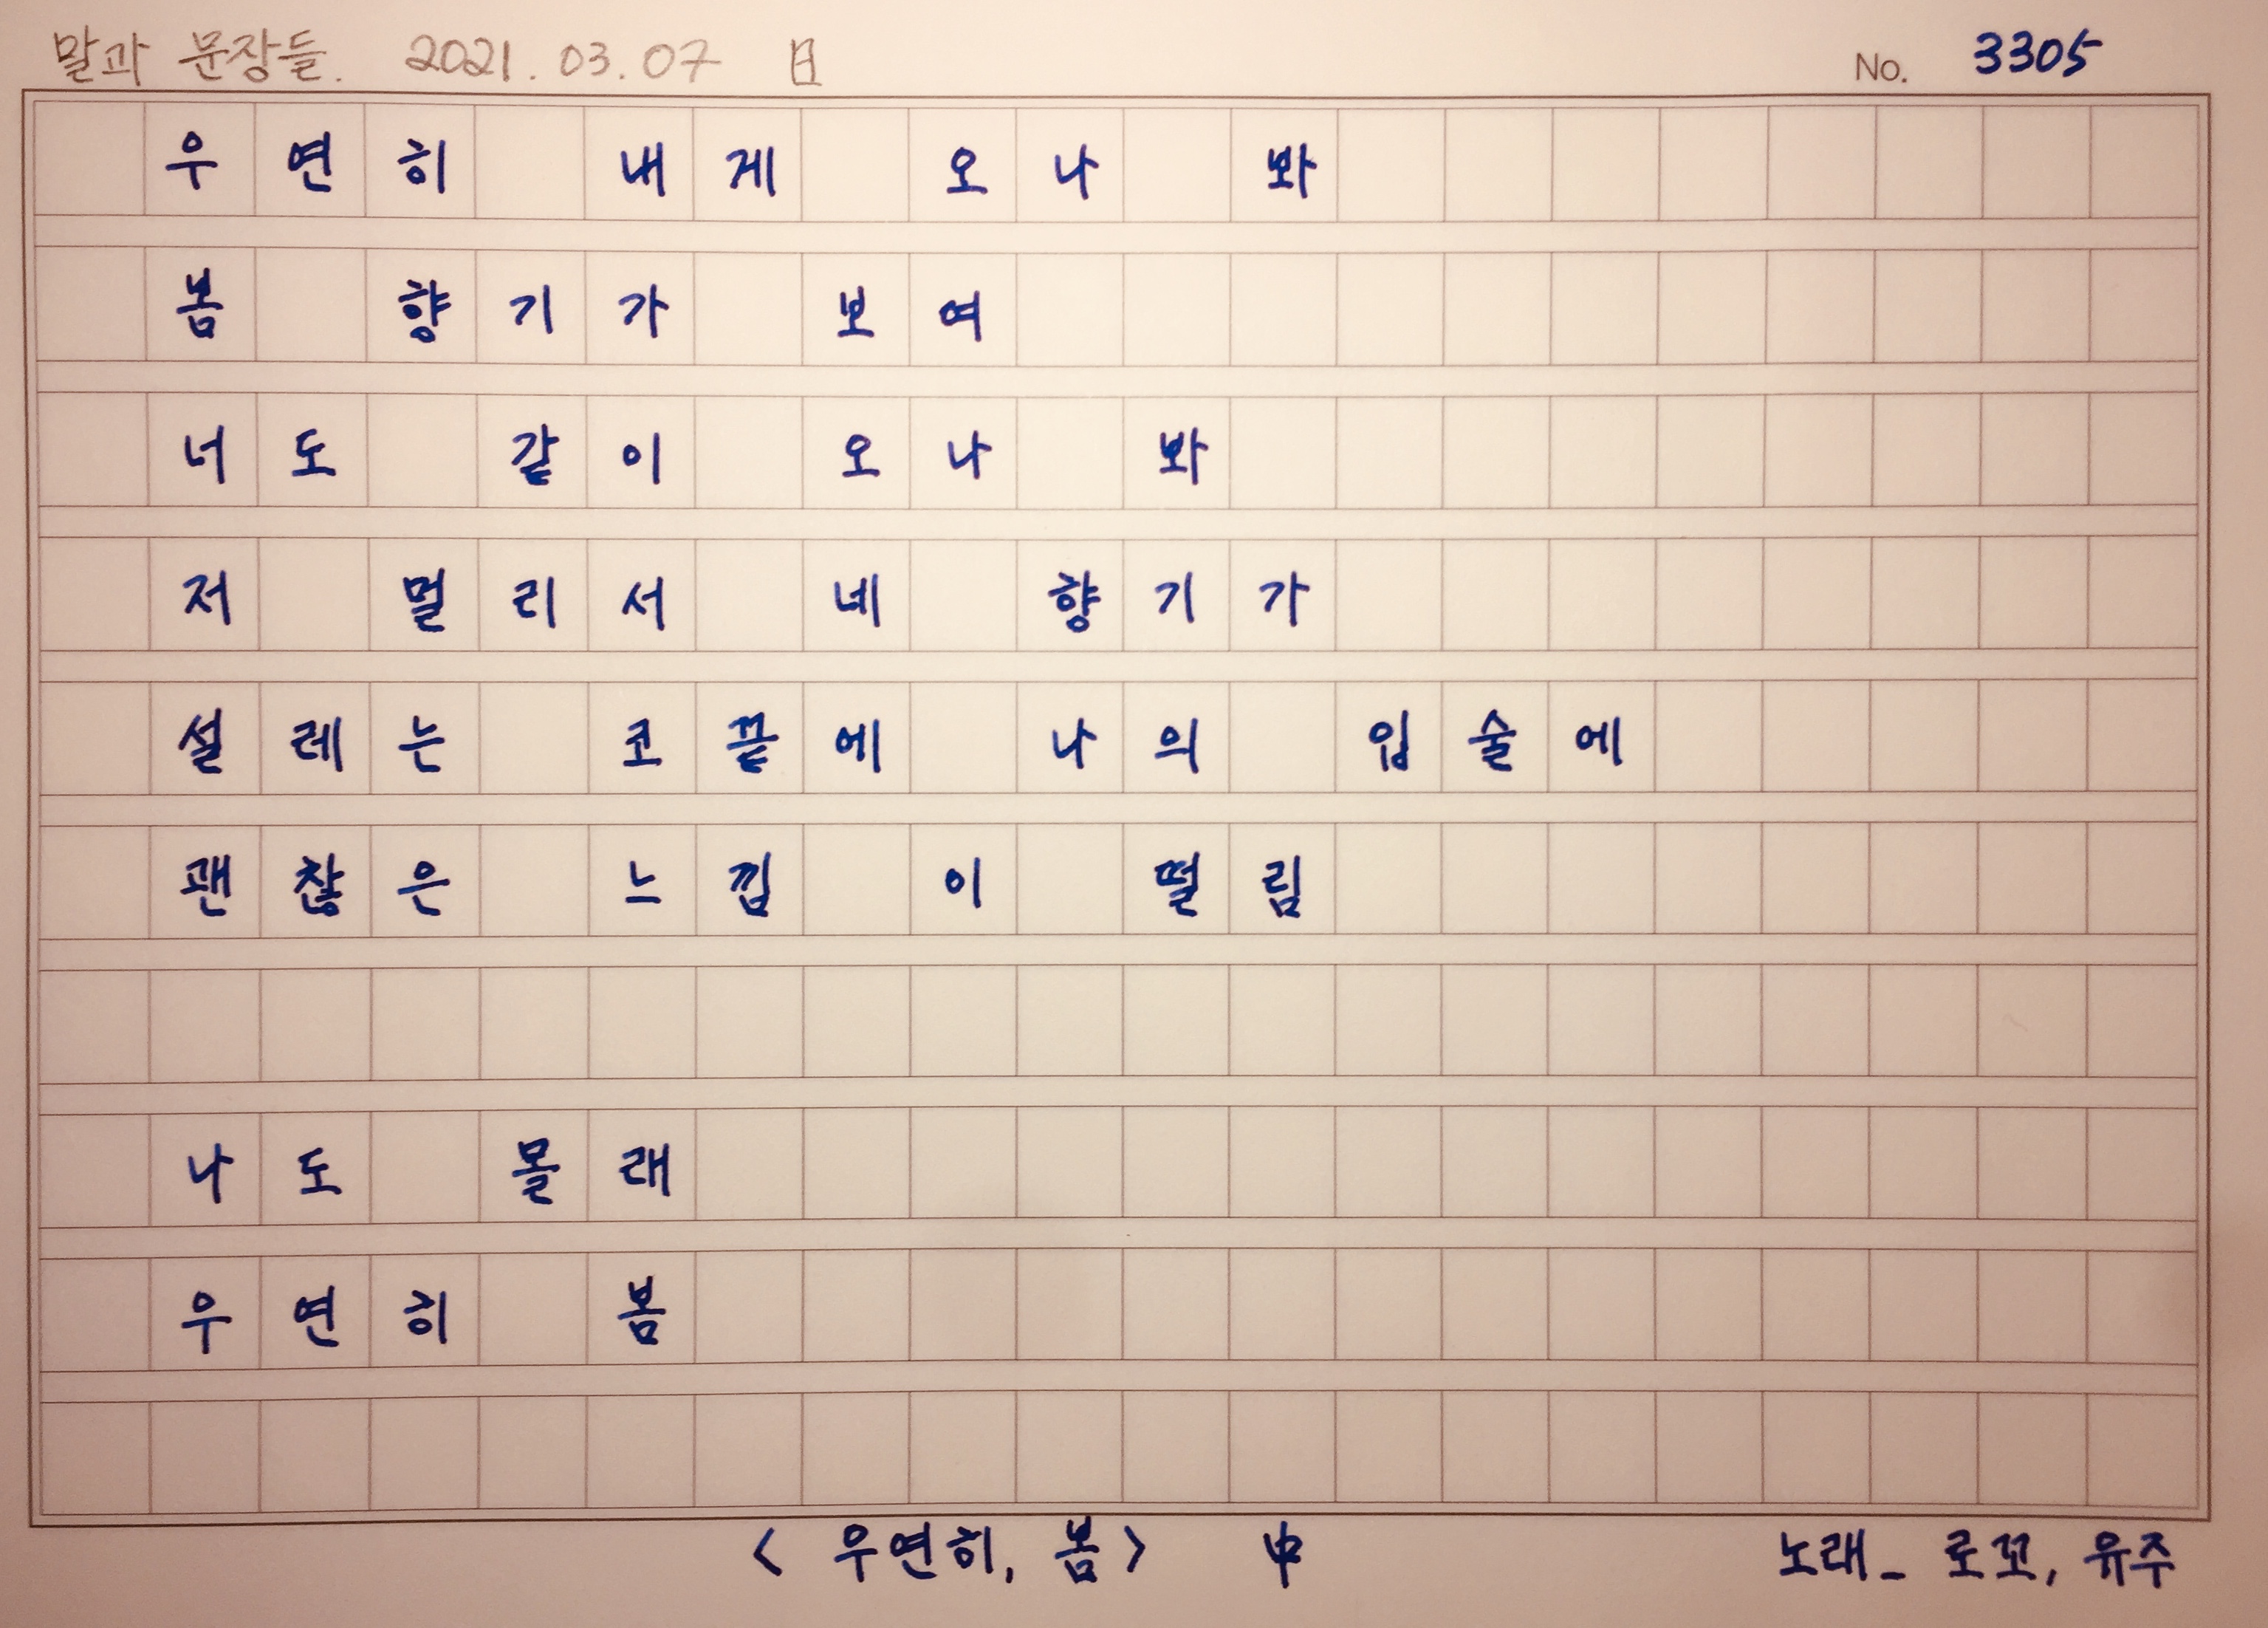 말과 문장들. 2021.03.07 日
No. 3305
우연히 내게 오나 봐
봄 향기가 보여
너도 같이 오나 봐
저 멀리서 네 향기가
설레는 코끝에 나의 입술에
괜찮은 느낌 이 떨림
나도 몰래
우연히 봄
< 우연히, 봄 > 中
노래_ 로꼬, 유주